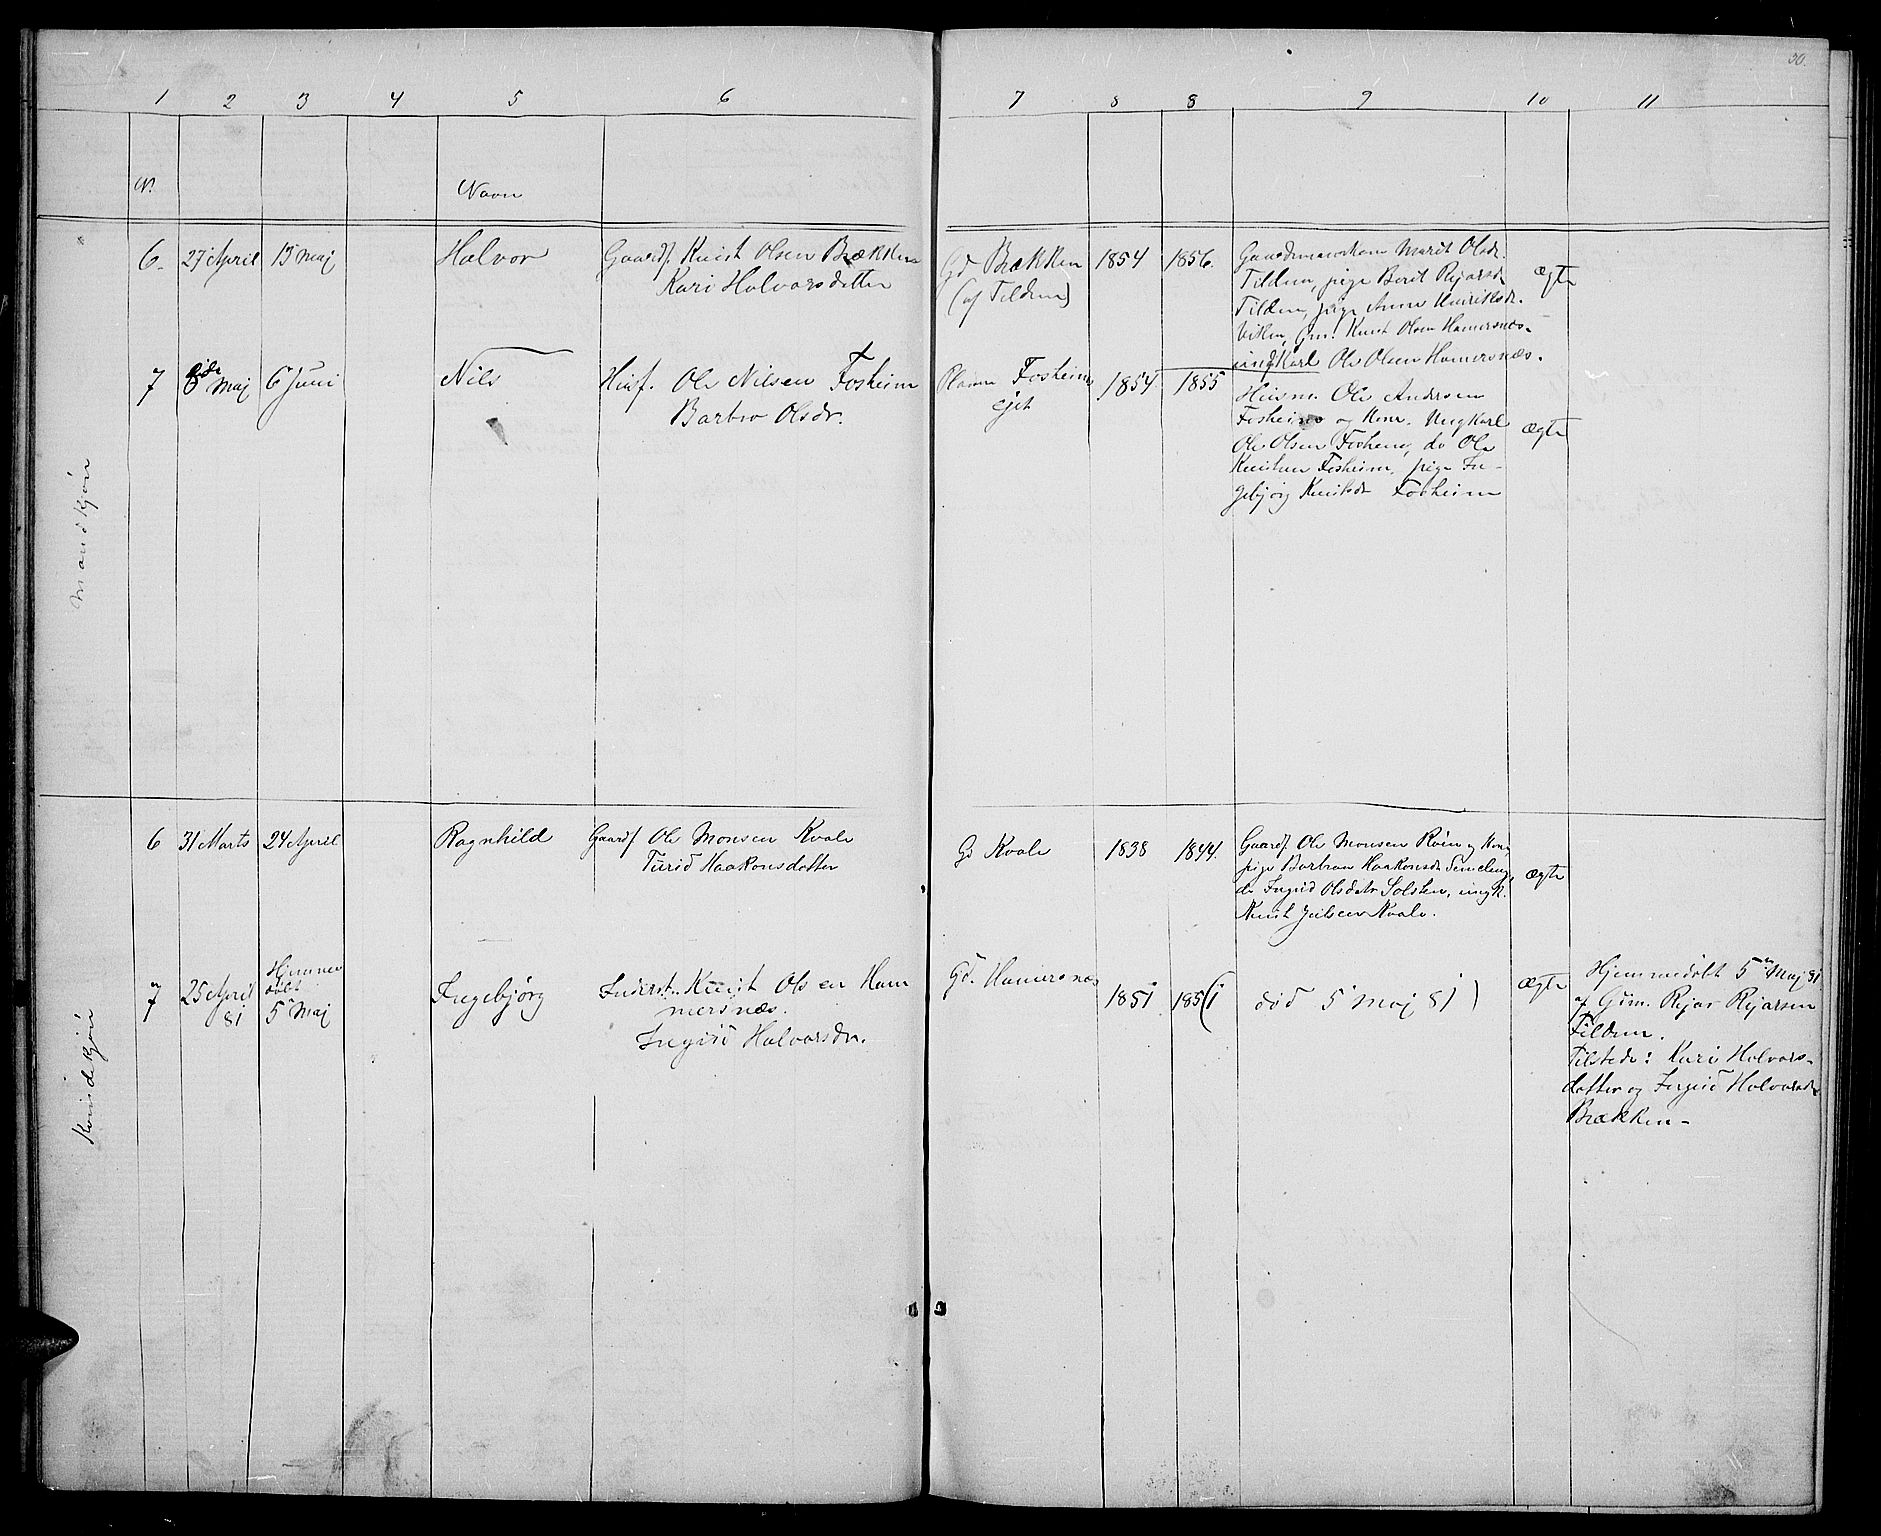 30.
1 2 3 4 5 6 7 8 8 9 10 11
N. Navn
Mandkjøn
6. 27 April 15 Maj Halvor Gaardf. Knut Olsen Brækken
Kari Halvorsdatter
Gd Brækken
(af Tildem)
1854 1856.
Gaardmandskone Marit Olsdr.
Tildem, pige Berit Rejarsdr
Tildem, pige Anne Henriksdr.
Viken, Gm. Knut Olsen Hamersnæs.
ungkarl Ole Olsen Hamersnæs.
ægte
7 8de Maj 6 Juni Nils Husf. Ole Nilsen Fosheim
Barbro Olsdr.
Fosheims
ejet
1854 1855
Husm. Ole Andersen
Fosheim og Kone. Ungkarl
Ole Olsen Fosheim, do Ole
Knutsen Fosheim, pige In-
gebjørg Knutsdr Fosheim
ægte
Kvindekjøn
6 31 Marts 24 April Ragnhild Gaardf Ole Monsen Kvale
Turid Haakonsdatter
Gd Kvale
1838 1844.
Gaardf Ole Monsen Røin og Kone,
pige Barbro Haakonsdr
do Ingrid Olsdatr Solsten, ungk.
Knut Kvale.
ægte
7 25 April
81
Hjemme
døbt
5 Maj
Ingebjørg Inderst. Knut Olsen Ham
mersnæs.
Ingrid Halvorsdr.
Gd. Hamersnæs
1851 185(1 død 5 Maj 81)
ægte
Hjemmedøbt 5 Maj 81
af Gdm. Rejar Rejarsen
Tildem.
Tilstede: Kari Halvors-
datter og Ingrid Halvorsdr
Brækken-